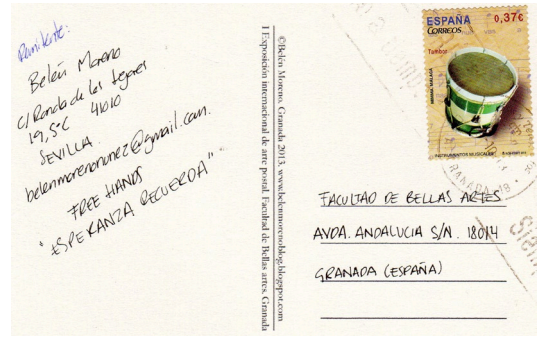 Remitente:
Belén Moreno
C/ Ronda de los tejares
19, 5°C 41010
SEVILLA.
belenmorenonunez@gmail.com.
FREE HANDS
"ESPERANZA RECUERDA"
©Belén Moreno. Granada 2013. www.belenmorenoblog.blogspot.com
I Exposición internacional de arte postal. Facultad de Bellas artes. Granada
ESPAÑA 0,37€
CORREOS
Tambor
MIMMA. MÁLAGA
INSTRUMENTOS MUSICALES
GRANADA
FACULTAD DE BELLAS ARTES
AVDA. ANDALUCIA S/N. 18014
GRANADA (ESPAÑA)